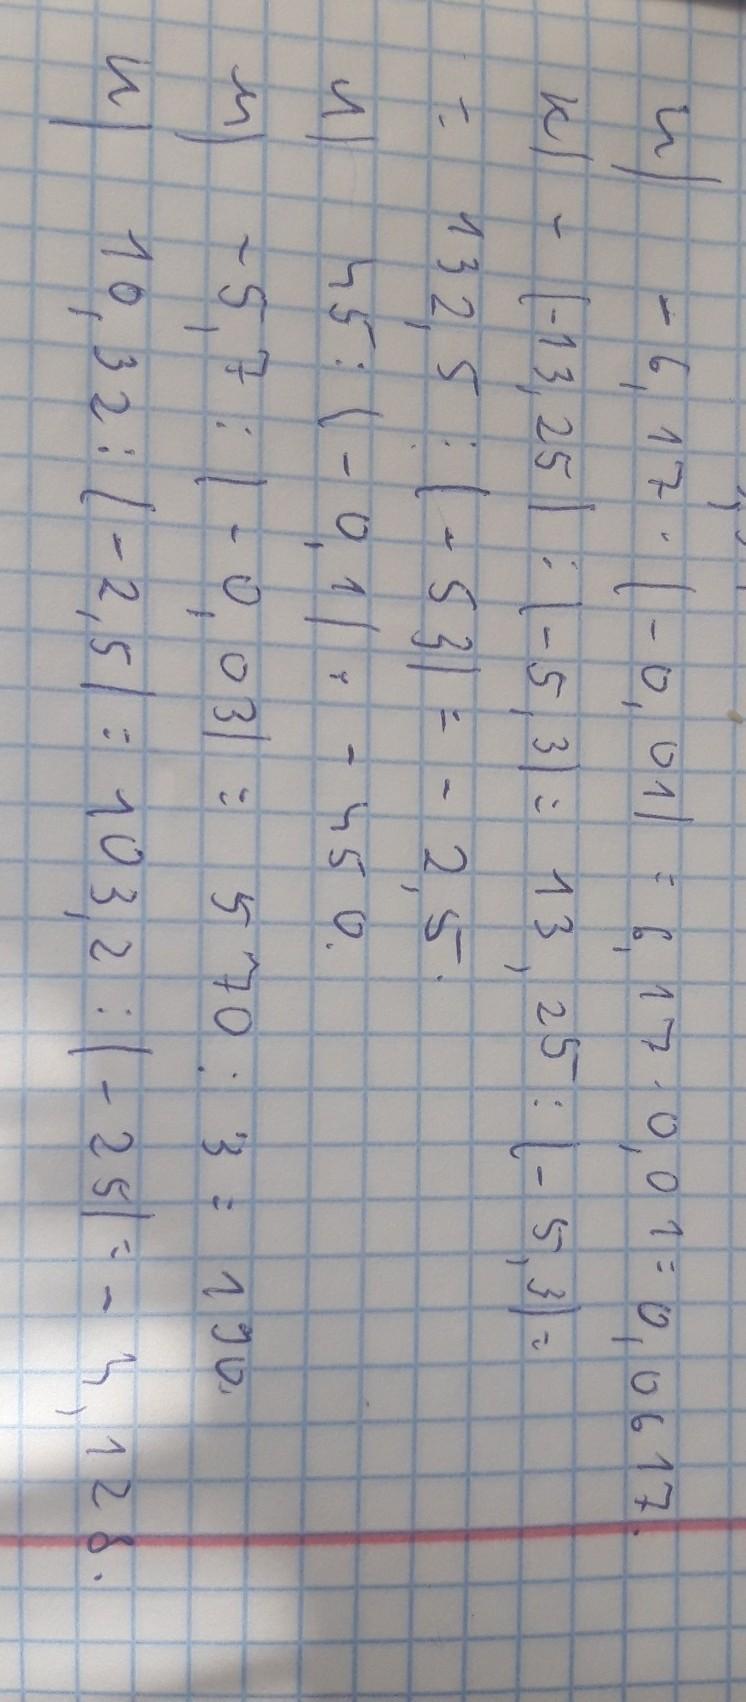 и) -6,17 · (-0,01) = 6,17 · 0,01 = 0,0617.
к) -(-13,25) : (-5,3) = 13,25 : (-5,3) =
= 132,5 : (-53) = -2,5.
л) 45 : (-0,1) = -450.
м) -5,7 : (-0,03) = 570 : 3 = 190.
н) 10,32 : (-2,5) = 103,2 : (-25) = -4,128.